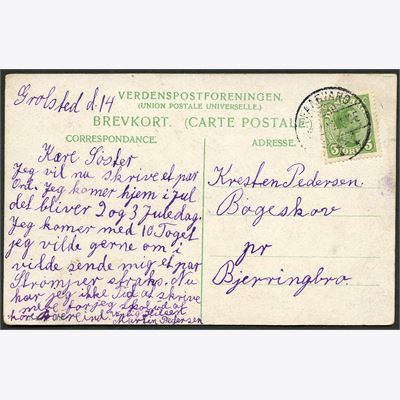 Grolsted d. 14
VERDENSPOSTFORENINGEN.
(UNION POSTALE UNIVERSELLE.)
BREVKORT. (CARTE POSTALE)
CORRESPONDANCE.
ADRESSE.
Kære Söster
Jeg vil nu skrive et par
Ord. Jeg komer hjem i Jul
det bliver 2 og 3 Juledag.
Jeg komer med 10 Toget
jeg vilde gerne om i
vilde sende mig et par
Strömper straks. Nu
har jeg ikke Tid at skrive
mere for jeg skal ud at
köre
Martin Pedersen
Kresten Pedersen
Bögeskov
pr
Bjerringbro.
5 5